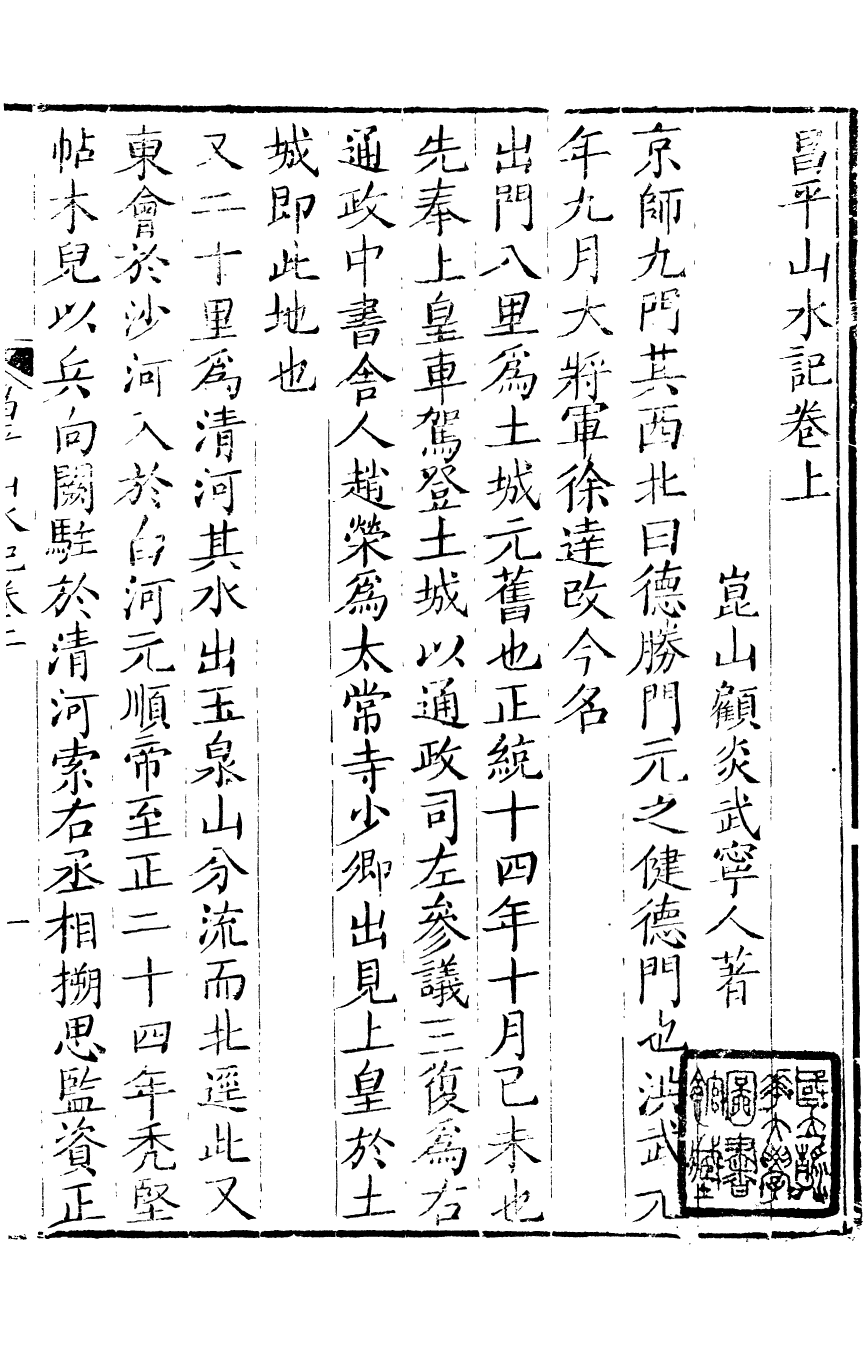 昌平山水記卷上
崑山顧炎武寧人著
京師九門其西北曰德勝門元之健德門也洪武元
年九月大將軍徐達改今名
出門八里爲土城元舊也正統十四年十月己未也
先奉上皇車駕登土城以通政司左參議王復爲右
通政中書舍人趙榮爲太常寺少卿出見上皇於土
城即此地也
又二十里爲清河其水出玉泉山分流而北逕此又
東會於沙河入於白河元順帝至正二十四年禿堅
帖木兒以兵向闕駐於清河索右丞相搠思監資正
昌平山水記卷上
一
國立清
華大學
圖書
館藏